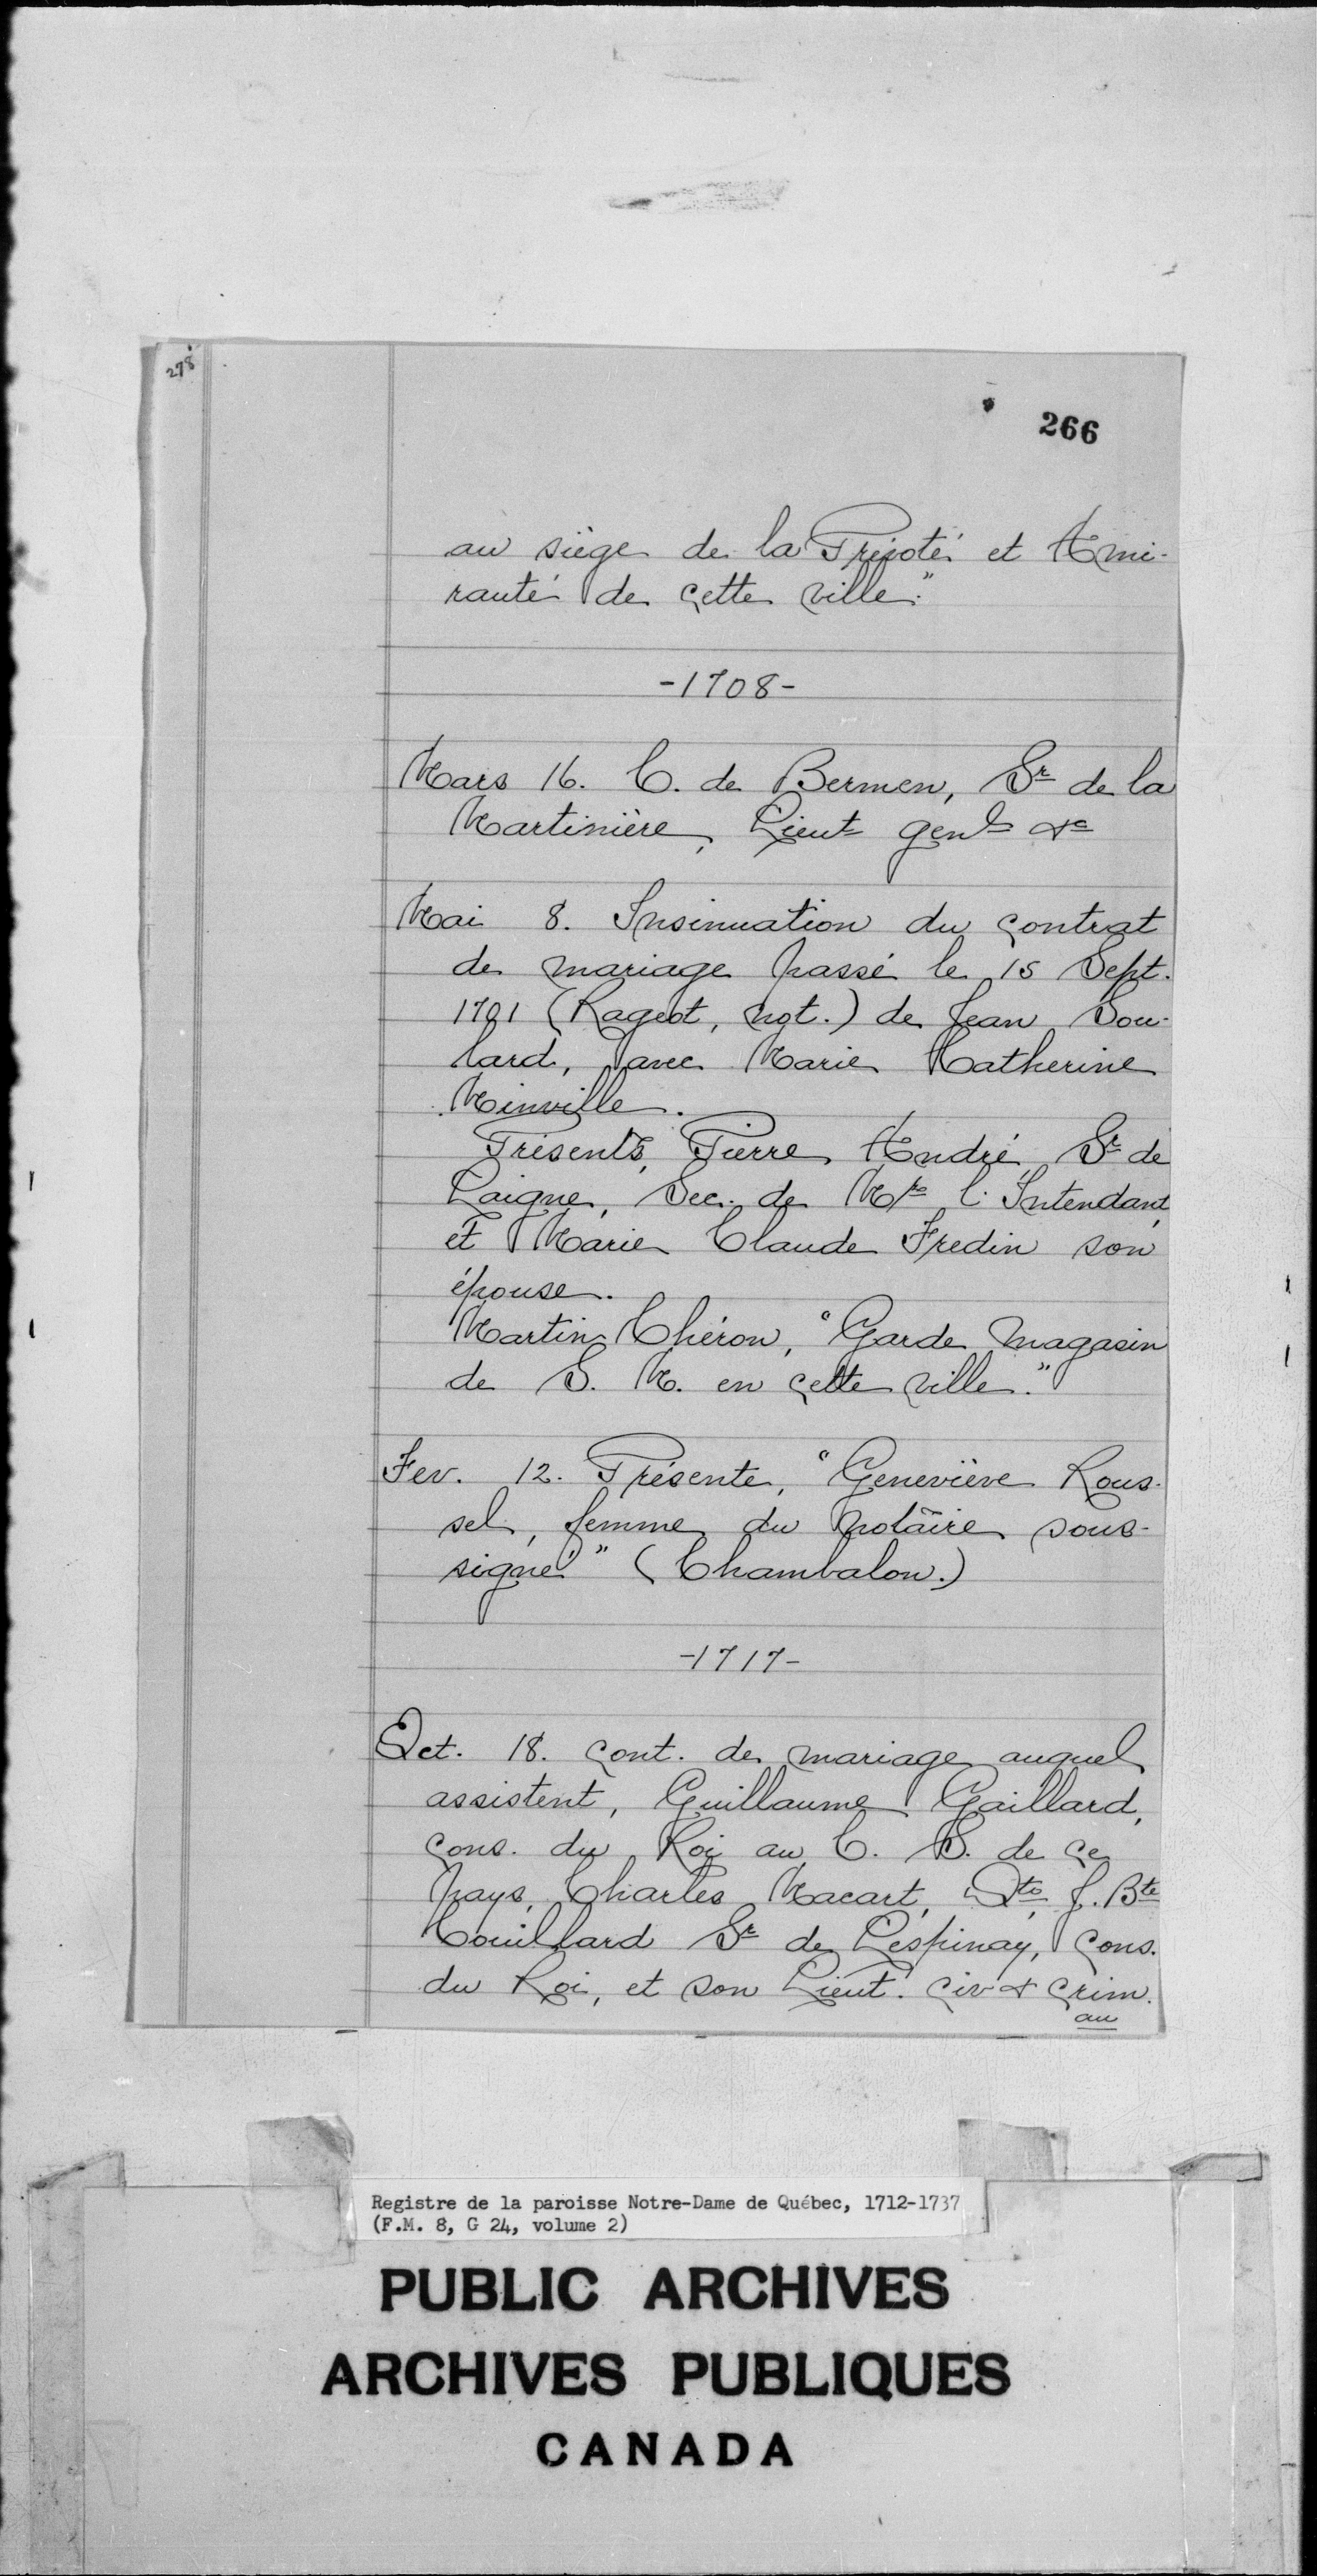 278
266
au siège de la Prévoté et Ami-
rauté de cette ville."
-1708-
Mars 16. C. de Bermen, Sr de la
Martinière, Lieut genl &c
Mai 8. Insinuation du contrat
de mariage passé le 15 Sept.
1701 (Rageot, not.) de Jean Sou-
lard, avec Marie Catherine
Minville.
Présents, Pierre André Sr de
Laigne, Sec. de Mr l'Intendant,
et Marie Claude Fredin son
épouse.
Martin Chéron, "Garde magasin
de S. M. en cette ville."
Fev. 12. Présente, "Geneviève Rous-
sel, femme du notaire sous-
signé" (Chambalon.)
-1717-
Oct. 18. Cont. de mariage auquel
assistent, Guillaume Gaillard,
cons. du Roi au C. S. de ce
pays, Charles Macart, Dto, J. Bte
Couillard Sr de Lespinay, Cons.
du Roi, et son Lieut. Civ & Crim.
au
Registre de la paroisse Notre-Dame de Québec, 1712-1737
(F.M. 8, G 24, volume 2)
PUBLIC ARCHIVES
ARCHIVES PUBLIQUES
CANADA